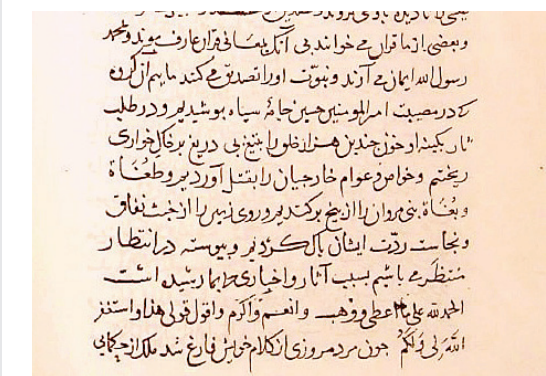 وبعضی از ما قرآن می خوانند بی آنک بمعانی قرآن عارف شوند و بمحمد
رسول الله ایمان می آرند و نبوت اورا تصدیق می کنند ما هم از آن گروه
که در مصیبت امیر المومنین حسین جامهٔ سیاه پوشیدیم و در طلب
او خون چندین هزار خلق را بتیغ بی دریغ بر خاک خواری
ریختیم و خواص و عوام خارجیان را بقتل آوردیم و طغاة
و بغاة بنی مروان را از بیخ برکندیم و روی زمین را از خبث نفاق
و نجاست ردّت ایشان پاک کردیم و پیوسته در انتظار
منتظَر می باشیم بسبب آثار و اخباری که بما رسیده است
الحمد لله علی ما اعطی و وهب وانعم واکرم واقول قولی هذا واستغفر
الله لی ولکم چون مرد مروزی از کلام خویش فارغ شد ملک از